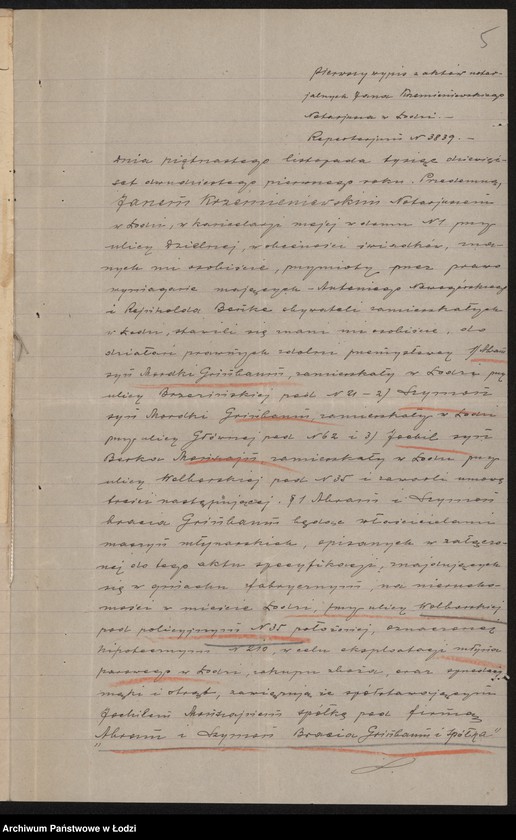 5
Pierwszy wypis z aktów notar-
jalnych Jana Krzemieniewskiego
Notarjusza w Łodzi. —
Repertorjum N 3839. —
Dnia piętnastego listopada tysiąc dziewięć-
set dwudziestego pierwszego roku. Przedemną,
Janem Krzemieniewskim Notarjuszem
w Łodzi, w kancelarji mojej w domu N 1 przy
ulicy Dzielnej, w obecności świadków, zna-
nych mi osobiście, przymioty przez prawo
wymagane mających – Antoniego
i Rejnholda Benke obywateli zamieszkałych
w Łodzi, stawili się znani mi osobiście, do
działań prawnych zdolni przemysłowcy 1/ Abram
syn Mordki Grünbaum, zamieszkały w Łodzi przy
ulicy Brzezińskiej pod N 21 – 2) Szymon
syn Mordki Grünbaum zamieszkały w Łodzi
przy ulicy Głównej pod N 62 i 3) Jechil syn
Berka zamieszkały w Łodzi przy
ulicy Wolborskiej pod N 35 i zawarli umowę
treści następującej. § 1 Abram i Szymon
bracia Grünbaum będąc właścicielami
maszyn młynarskich, opisanych w załączo-
nej do tego aktu specyfikacji, znajdujących
się w gmachu fabrycznym, na nierucho-
mości w mieście Łodzi, przy ulicy Wolborskiej
pod policyjnym N 35 położonej, oznaczonej
hipotecznym N 210, w celu eksploatacji młyna
parowego w Łodzi, zakupu zboża, oraz sprzedaży
mąki i otrąb, zawiązują ze współstawającym
Jechilem spółkę pod firmą
„Abram i Szymon Bracia Grünbaum i Spółka"
Archiwum Państwowe w Łodzi